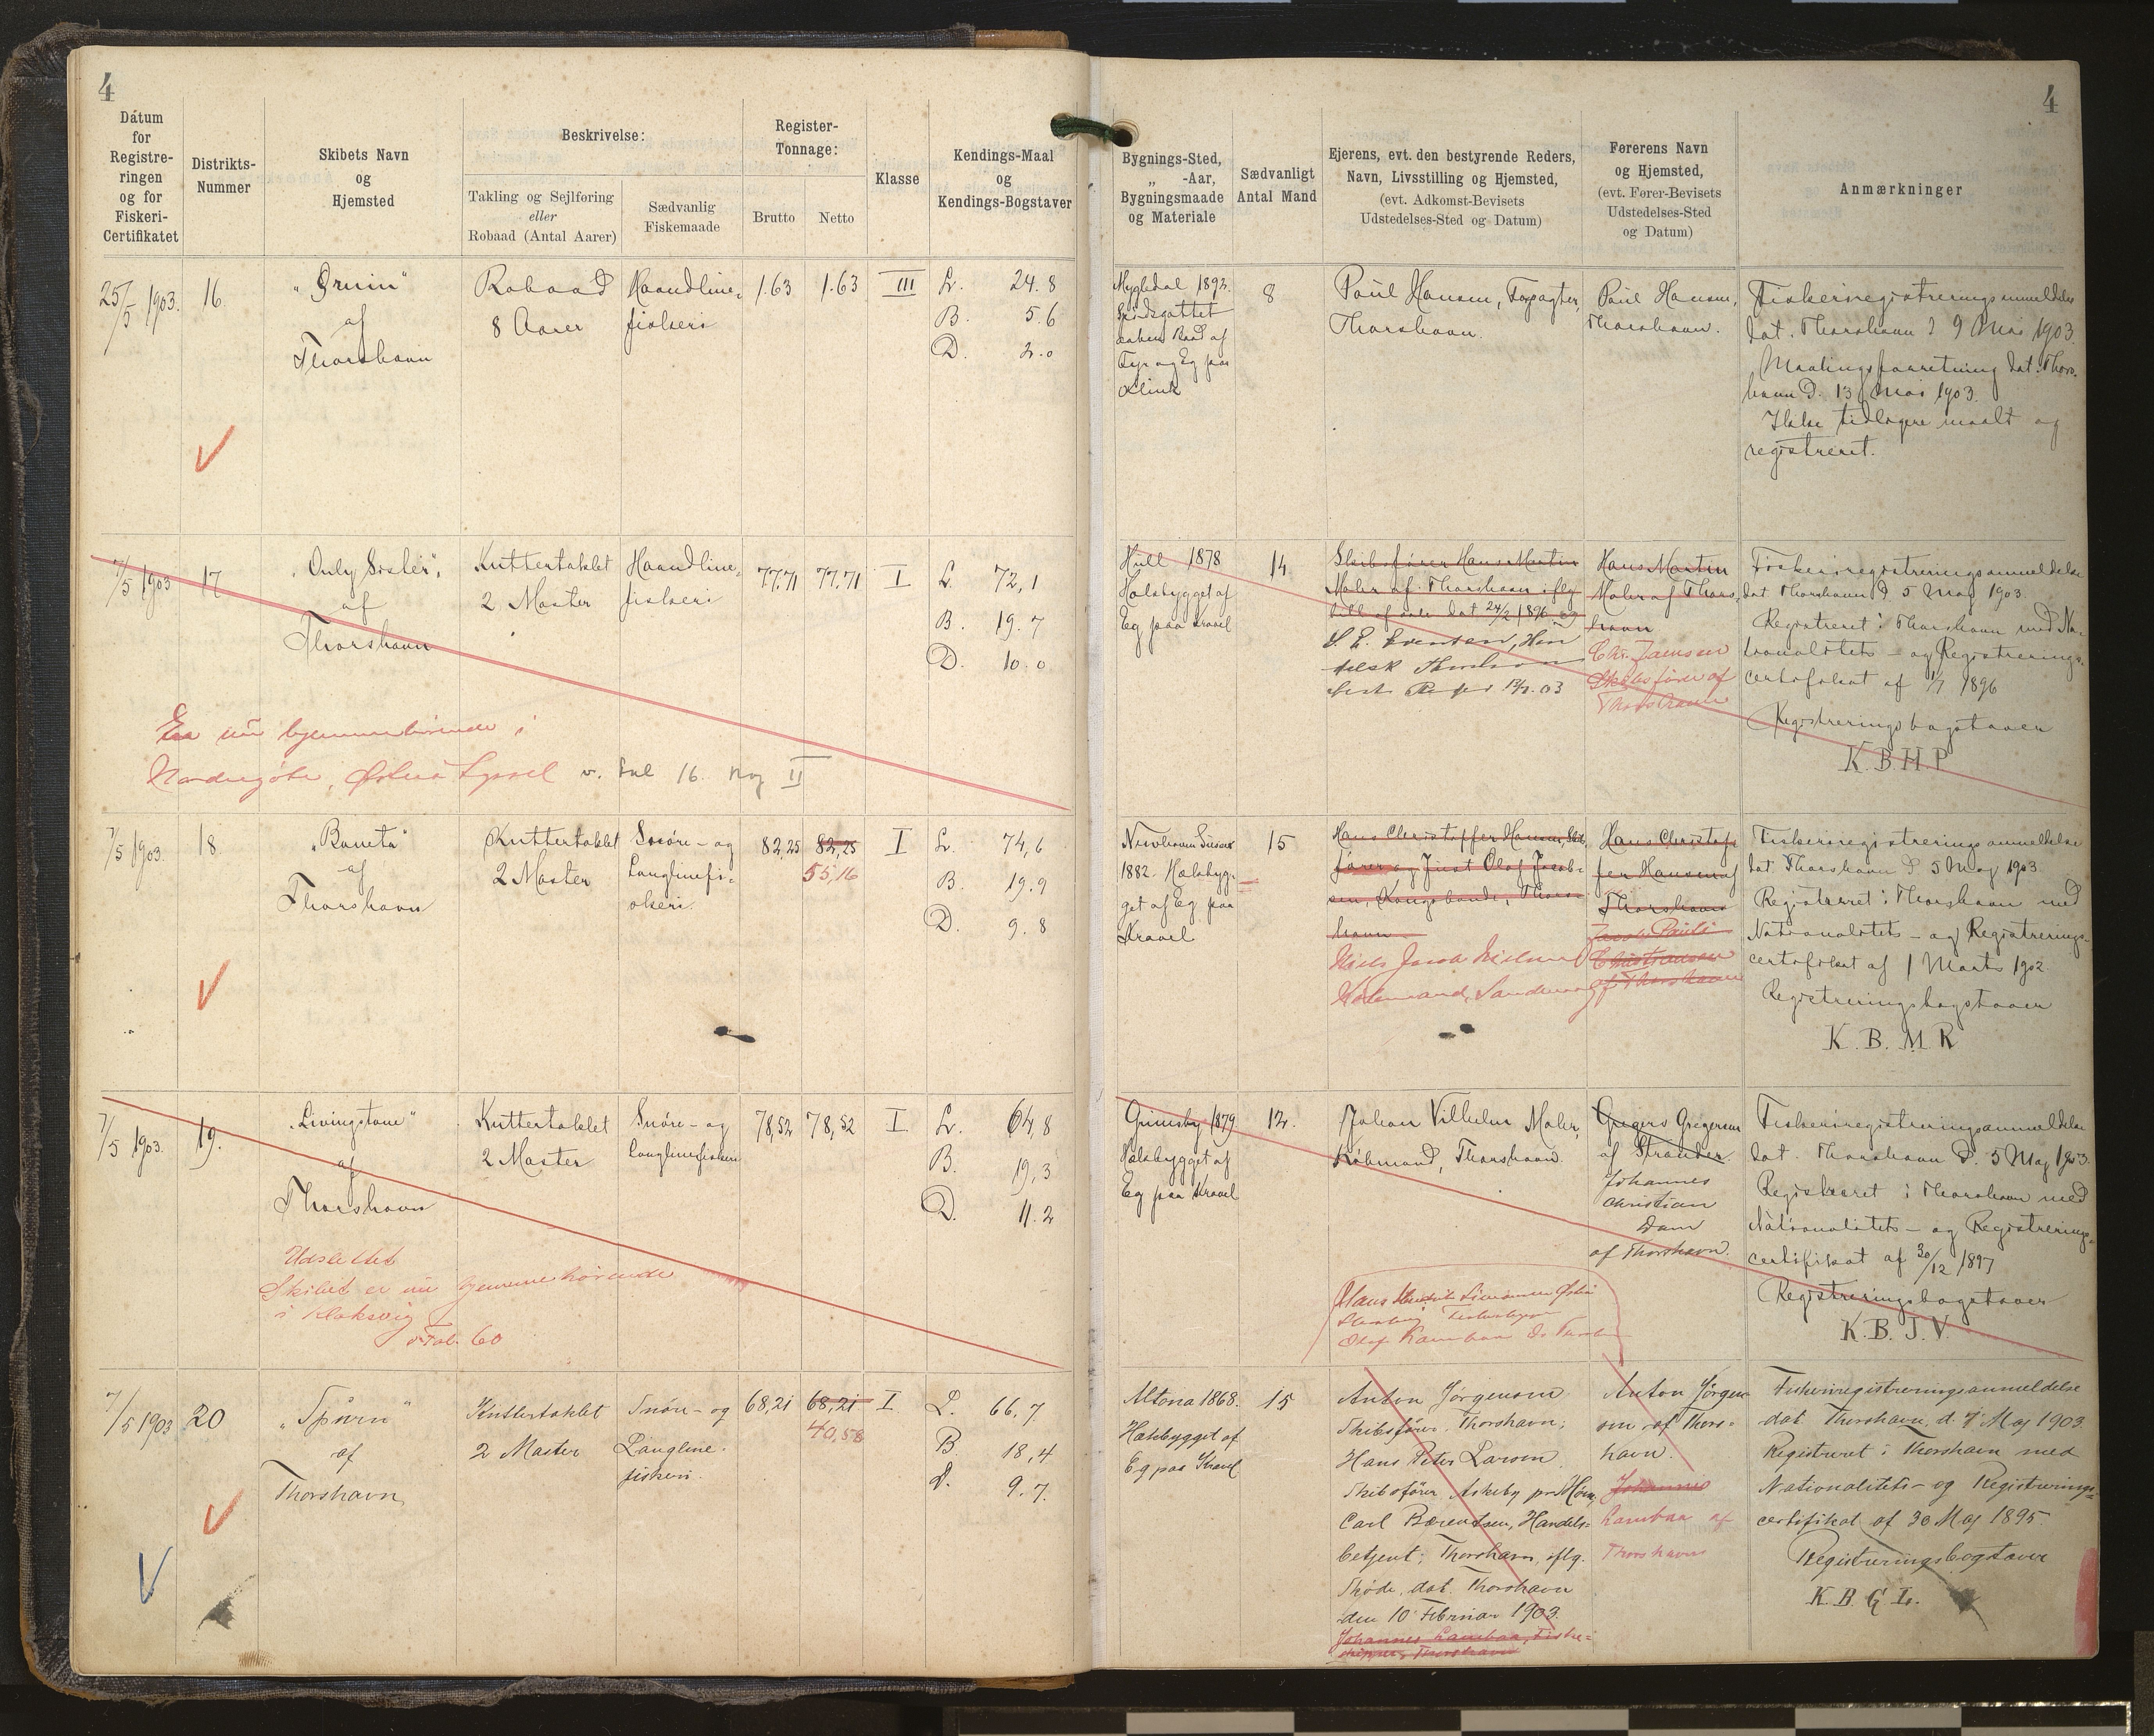 4
4
Datum
for
Registre-
ringen
og for
Fiskeri-
Certifikatet
Distrikts-
Nummer
Skibets Navn
og
Hjemsted
Beskrivelse:
Takling og Sejlføring
eller
Robaad (Antal Aarer)
Sædvanlig
Fiskemaade
Register-
Tonnage:
Brutto
Netto
Klasse
Kendings-Maal
og
Kendings-Bogstaver
Bygnings-Sted,
„ -Aar,
Bygningsmaade
og Materiale
Sædvanligt
Antal Mand
Ejerens, evt. den bestyrende Reders,
Navn, Livsstilling og Hjemsted,
(evt. Adkomst-Bevisets
Udstedelses-Sted og Datum)
Førerens Navn
og Hjemsted,
(evt. Fører-Bevisets
Udstedelses-Sted
og Datum)
Anmærkninger
25/5 1903.
16
af
Thorshavn
Robaad
8 Aarer
Haandline-
fiskeri
1.63
1.63
III
L. 24.8
B. 5.6
D. 2.0
1892.
Baad af
Fyr og Eg paa
Klink
8
Poul Hansen,
Thorshavn.
Poul Hansen,
Thorshavn.
Fiskeriregistreringsanmeldelse
dat. Thorshavn d 9 Mai 1903.
Maalingsforretning dat. Thors-
havn D. 13 Mai 1903.
Ikke tidligere maalt og
registreret.
7/5 1903
17
„Only Sister“
af
Thorshavn
Kuttertaklet
2 Master
Haandline-
fiskeri
77.71
77.71
I
L. 72,1
B. 19.7
D. 10.0
Er nu hjemmehørende i
Nordregøte, Østerø Syssel v. Fol 16. Prot II
Hull 1878
Hækbygget af
Eg paa Kravel
14
Skibsfører Hans Martin
Mohr af Thorshavn iflg.
bill of sale dat 24/2 1896 og
Hans Martin
Mohr af Thors-
havn
Skibsfører af
Thorshavn
Fiskeriregistreringsanmeldelse
dat Thorshavn d 5 Maj 1903.
Registreret i Thorshavn med Na-
tionalitets- og Registrerings-
certifikat af 1/7 1896
Registreringsbogstaver
K.B.H.P
7/5 1903.
18
„Baneta“
af
Thorshavn
Kuttertaklet
2 Master
Snøre- og
Langlinefi-
skeri
82,25
82,25
55,16
I
L. 74,6
B. 19.9
D. 9.8
1882. Hækbyg-
get af Eg paa
Kravel
15
Hans Christoffer Hansen, Skibs-
fører og Just Olaf Jacob-
sen, Kongsbonde, Thors-
havn
Niels Jacob Nielsen
Købmand,
Hans Christof-
fer Hansen af
Thorshavn
Jacob Pauli
Christiansen
af Thorshavn
Fiskeriregistreringsanmeldelse
dat. Thorshavn d 5 Maj 1903.
Registreret i Thorshavn med
Nationalitets- og Registrerings-
certifikat af 1 Marts 1902
Registreringsbogstaver
K. B. M. R
7/5 1903.
19.
„Livingstone“
af
Thorshavn
Kuttertaklet
2 Master
Snøre- og
Langlinefiskeri
78,52
78,52
I
L. 64,8
B. 19,3
D. 11.2
Udslettet
Skibet er nu hjemmehørende
i Klaksvig
v. Fol. 60
Grimsby 1879
Hækbygget af
Eg paa Kravel
12.
Johan Vilhelm Mohr,
Købmand, Thorshavn.
Gregers Gregersen
af Strænder.
Johannes
Christian
Dam
af Thorshavn.
Fiskeriregistreringsanmeldelse
dat. Thorshavn d. 5 Maj 1903.
Registreret i Thorshavn med
Nationalitets- og Registrerings-
certifikat af 30/12 1897
Registreringsbogstaver
K.B.J.V.
7/5 1903
20
„Spurn“
af
Thorshavn
Kuttertaklet
2 Master
Snøre- og
Langline-
fiskeri.
68,21
68,21
40,58
I
L. 66,7
B. 18,4
D. 9.7.
Altona 1868.
Hækbygget af
Eg paa Kravel
15
Anton Jørgensen
Skibsfører, Thorshavn;
Hans Peter Larsen
Skibsfører Askeby pr Møen,
Carl Bærentsen, Handels-
betjent, Thorshavn, iflg.
Skøde, dat. Thorshavn
den 10 Februar 1903.
Johannes Lambaa, Fiske-
skipper, Thorshavn
Anton Jørgen-
sen af Thors-
havn.
Johannes
Lambaa af
Thorshavn
Fiskeriregistreringsanmeldelse
dat. Thorshavn d. 7 Maj 1903.
Registreret i Thorshavn med
Nationalitets- og Registrerings-
certifikat af 30 Maj 1895.
Registreringsbogstaver
K.B.G.L.